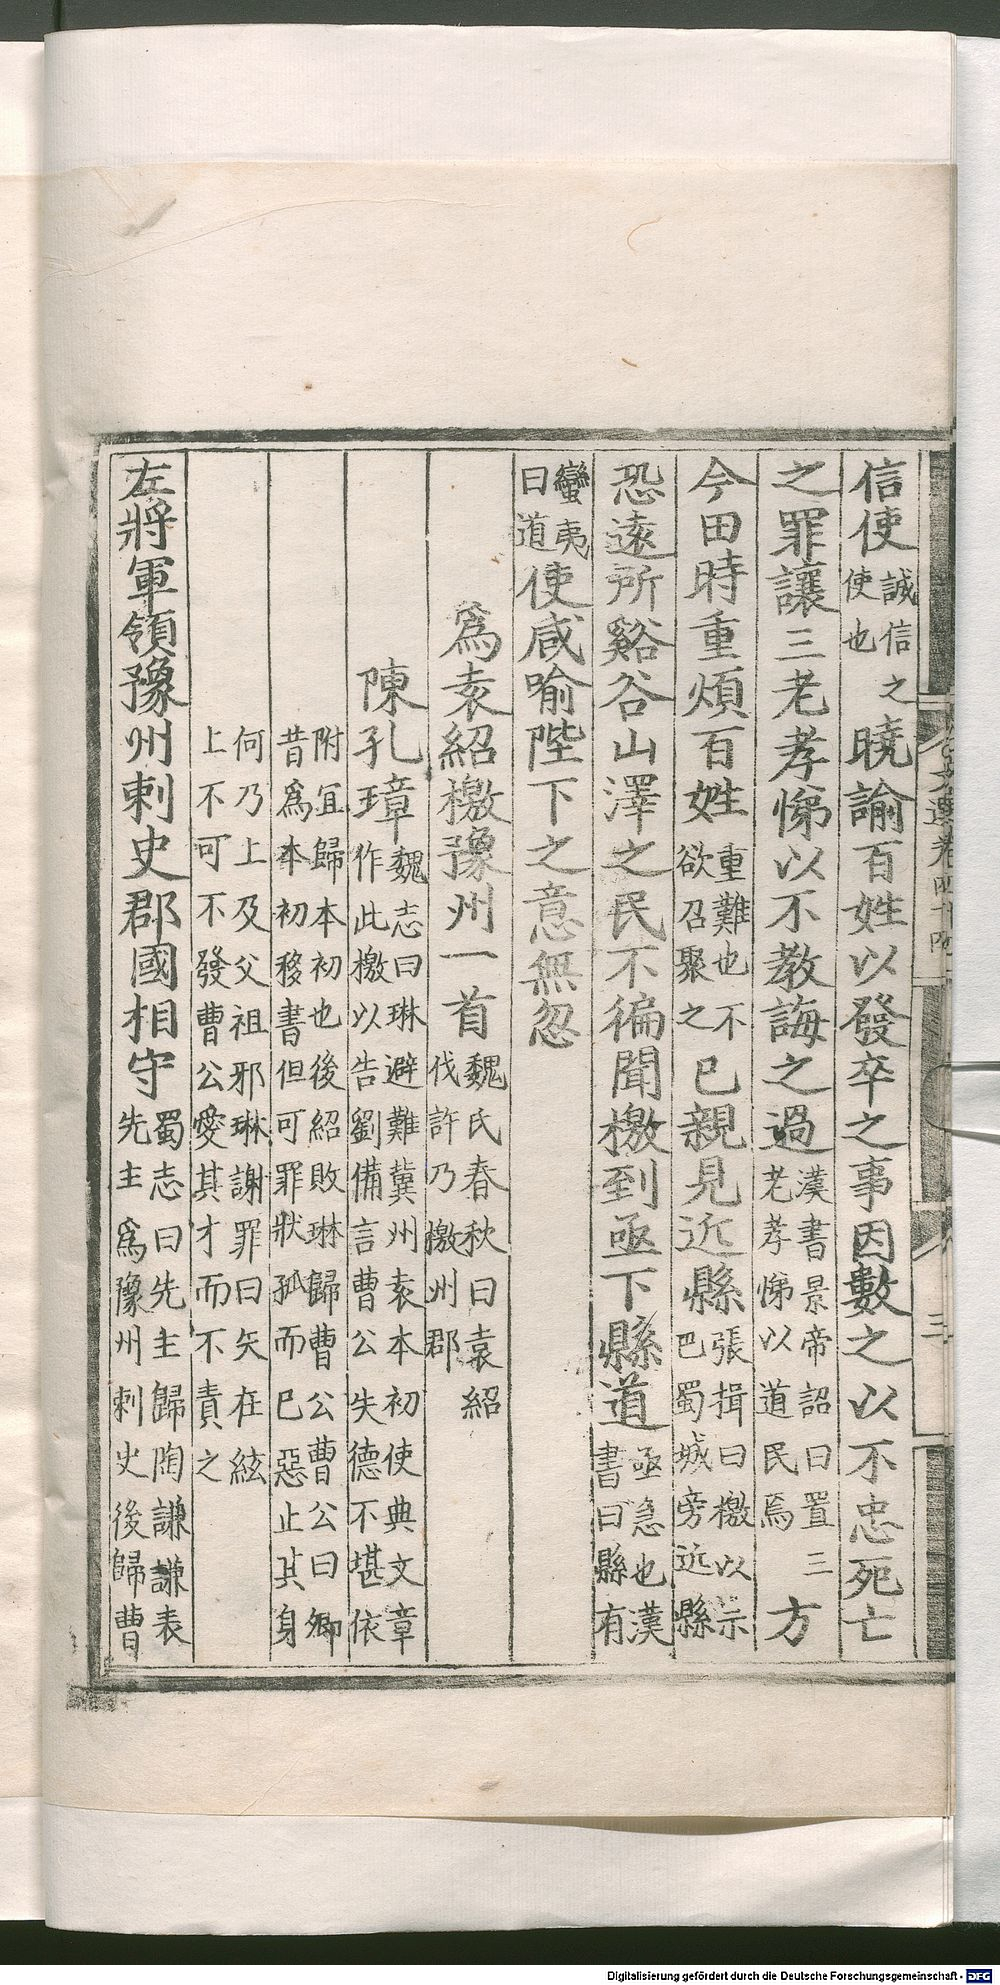 信使誠信之使也曉諭百姓以發卒之事因數之以不忠死亡
之罪讓三老孝悌以不教誨之過漢書景帝詔曰置三老孝悌以道民焉方
今田時重煩百姓重難也不欲召聚之已親見近縣張揖曰檄以示巴蜀城旁近縣
恐遠所谿谷山澤之民不徧聞檄到亟下縣道亟急也漢書曰縣有
蠻夷曰道使咸喻陛下之意無忽
爲袁紹檄豫州一首魏氏春秋曰袁紹伐許乃檄州郡
陳孔璋魏志曰琳避難冀州袁本初使典文章作此檄以告劉備言曹公失德不堪依
附宜歸本初也後紹敗琳歸曹公曹公曰卿昔爲本初移書但可罪狀孤而已惡止其身
何乃上及父祖邪琳謝罪曰矢在絃上不可不發曹公愛其才而不責之
左將軍領豫州刺史郡國相守蜀志曰先主歸陶謙謙表先主爲豫州刺史後歸曹
文選卷四十四
三
Digitalisierung gefördert durch die Deutsche Forschungsgemeinschaft - DFG